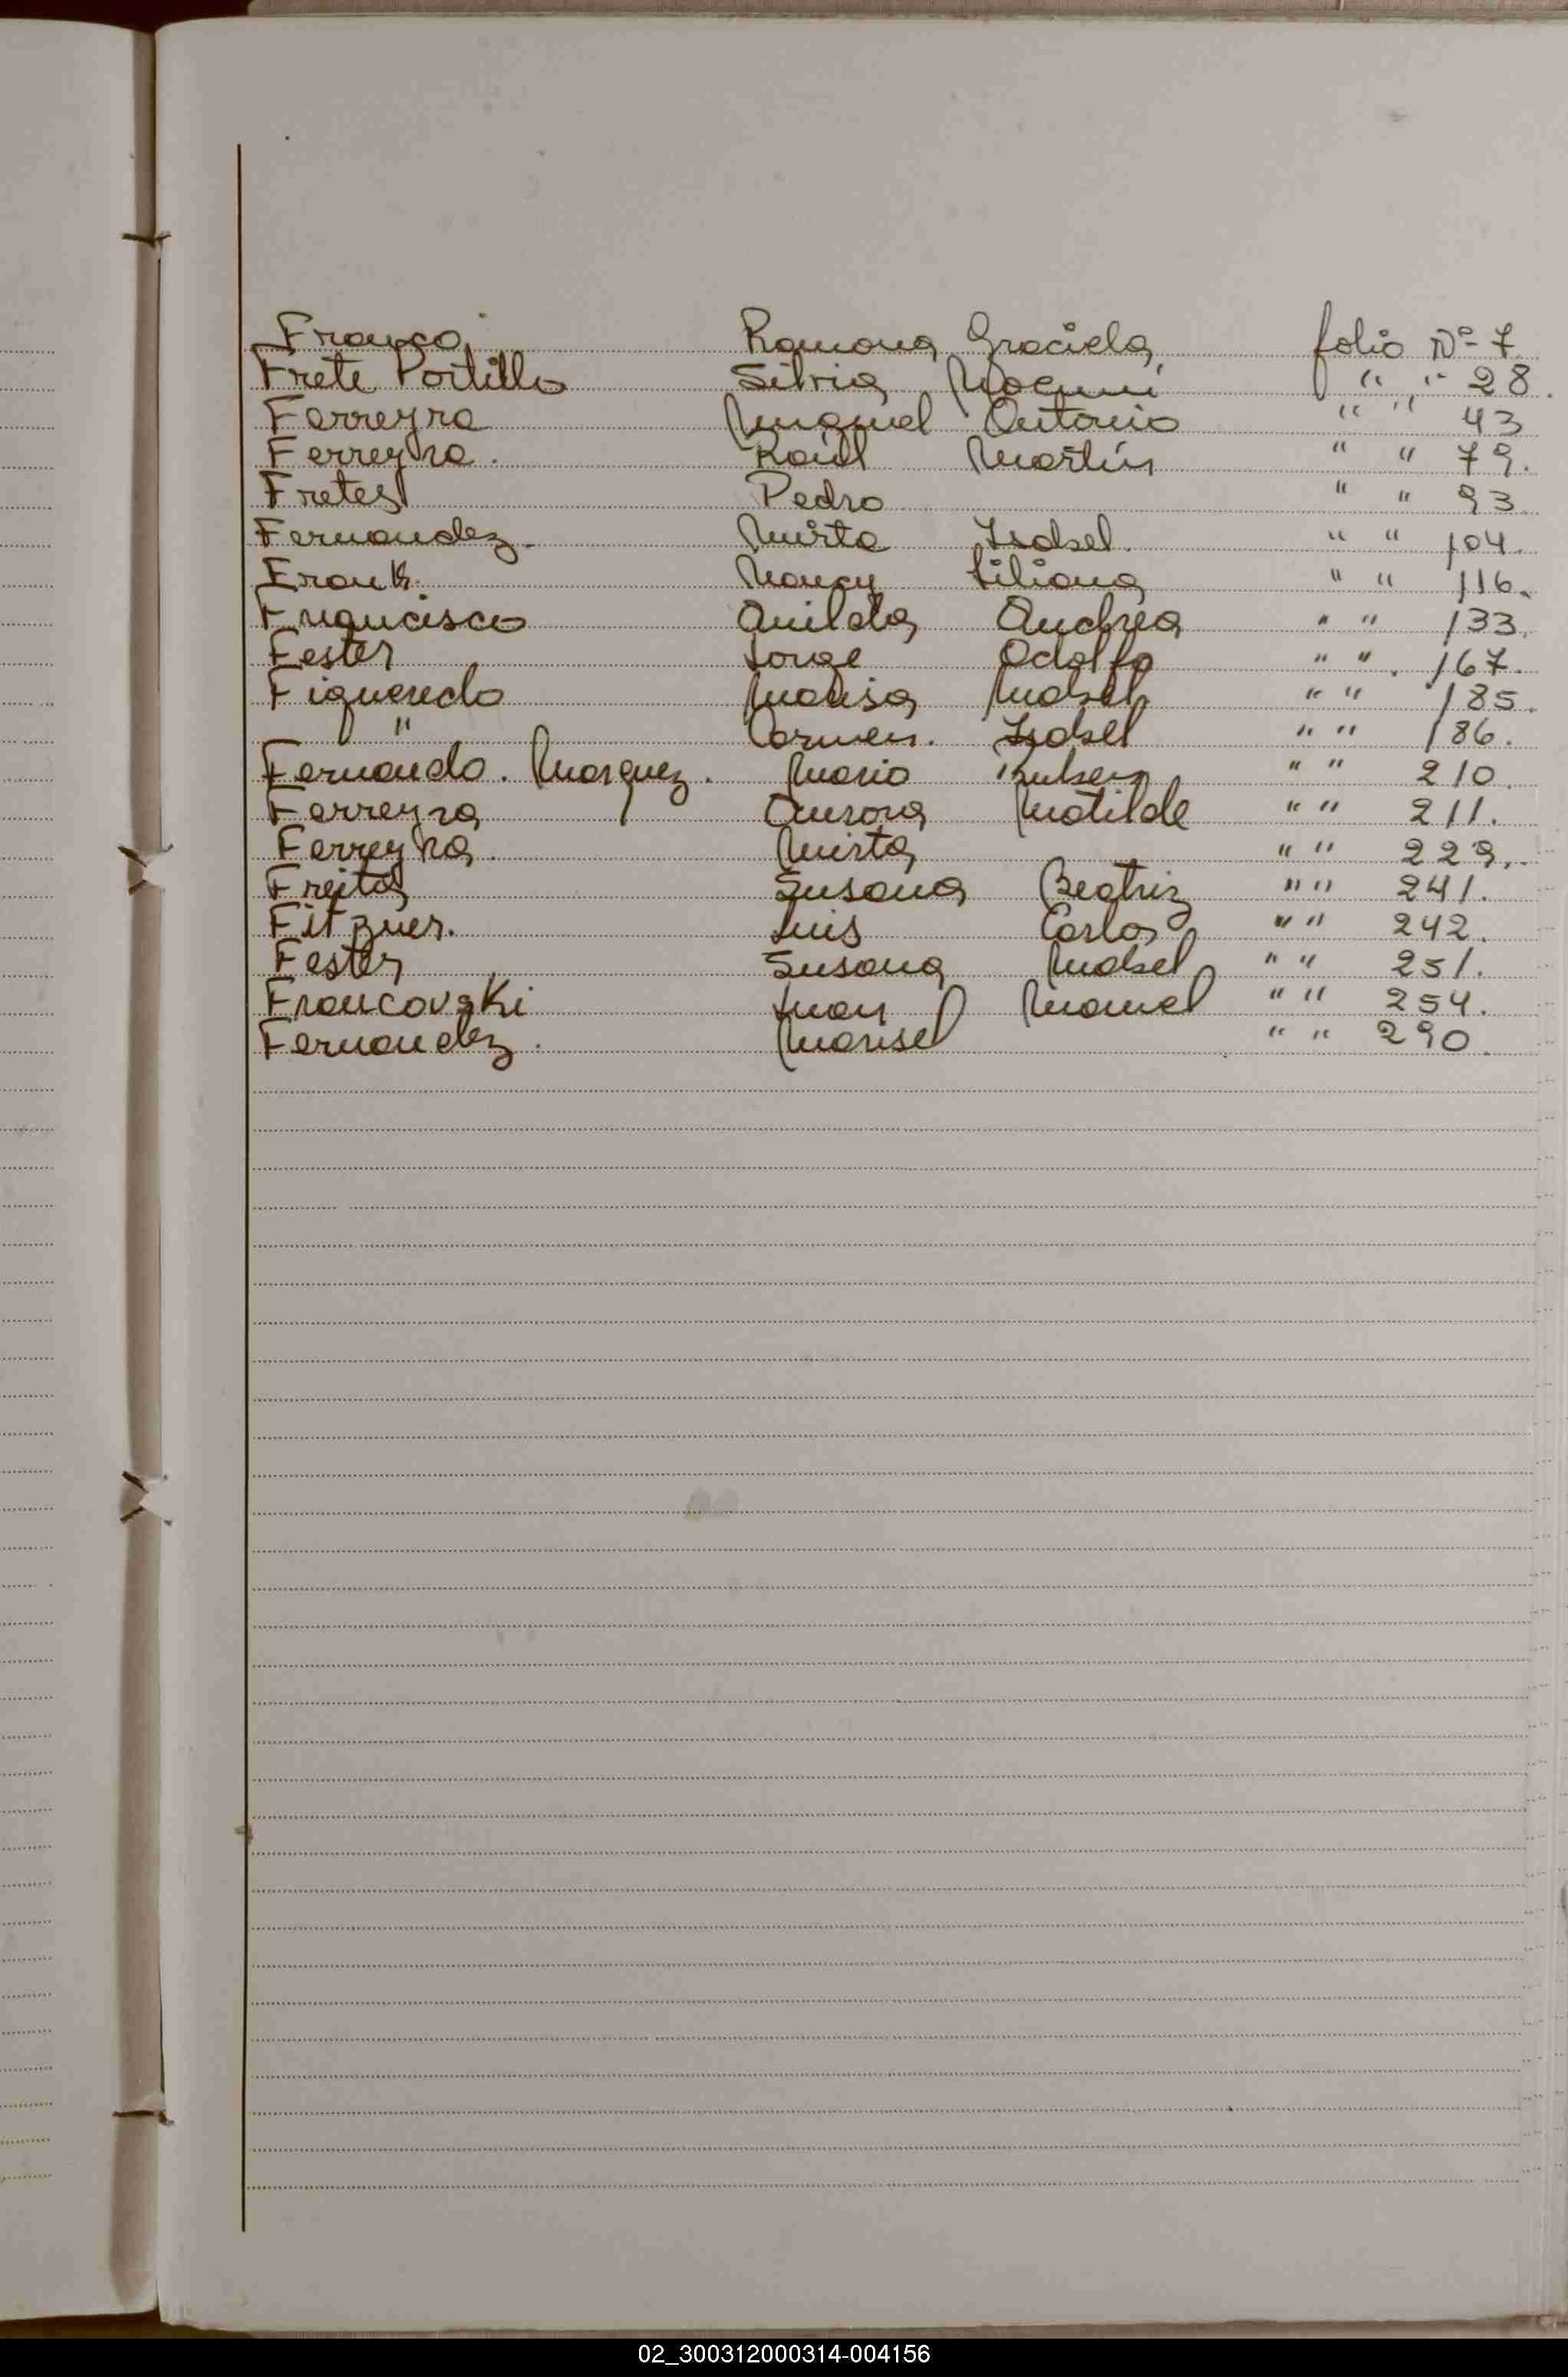 Franco Ramona Graciela folio Nº 7
Frete Portillo Silvia Noemí " " 28.
Ferreyra Miguel Antonio " " 43
Ferreyra. Raúl Martín " " 79.
Fretes Pedro " " 93
Fernandez. Mirta Isabel. " " 104.
Frank. Nancy Liliana " " 116.
Francisco Anilda Andrea " " 133.
Fester Jorge Adolfo " " 167.
Figueredo Marisa Mabel " " 185.
" Carmen. Isabel " " 186.
Fernando. Marquez. Mario Ruben " " 210.
Ferreyra Aurora Matilde " " 211.
Ferreyra. Mirta " " 229.
Freita Susana Beatriz " " 241.
Fitzner. Luis Carlos " " 242.
Fester Susana Mabel " " 251.
Francovski Juan Manuel " " 254.
Fernandez. Marisel " " 290.
02_300312000314-004156